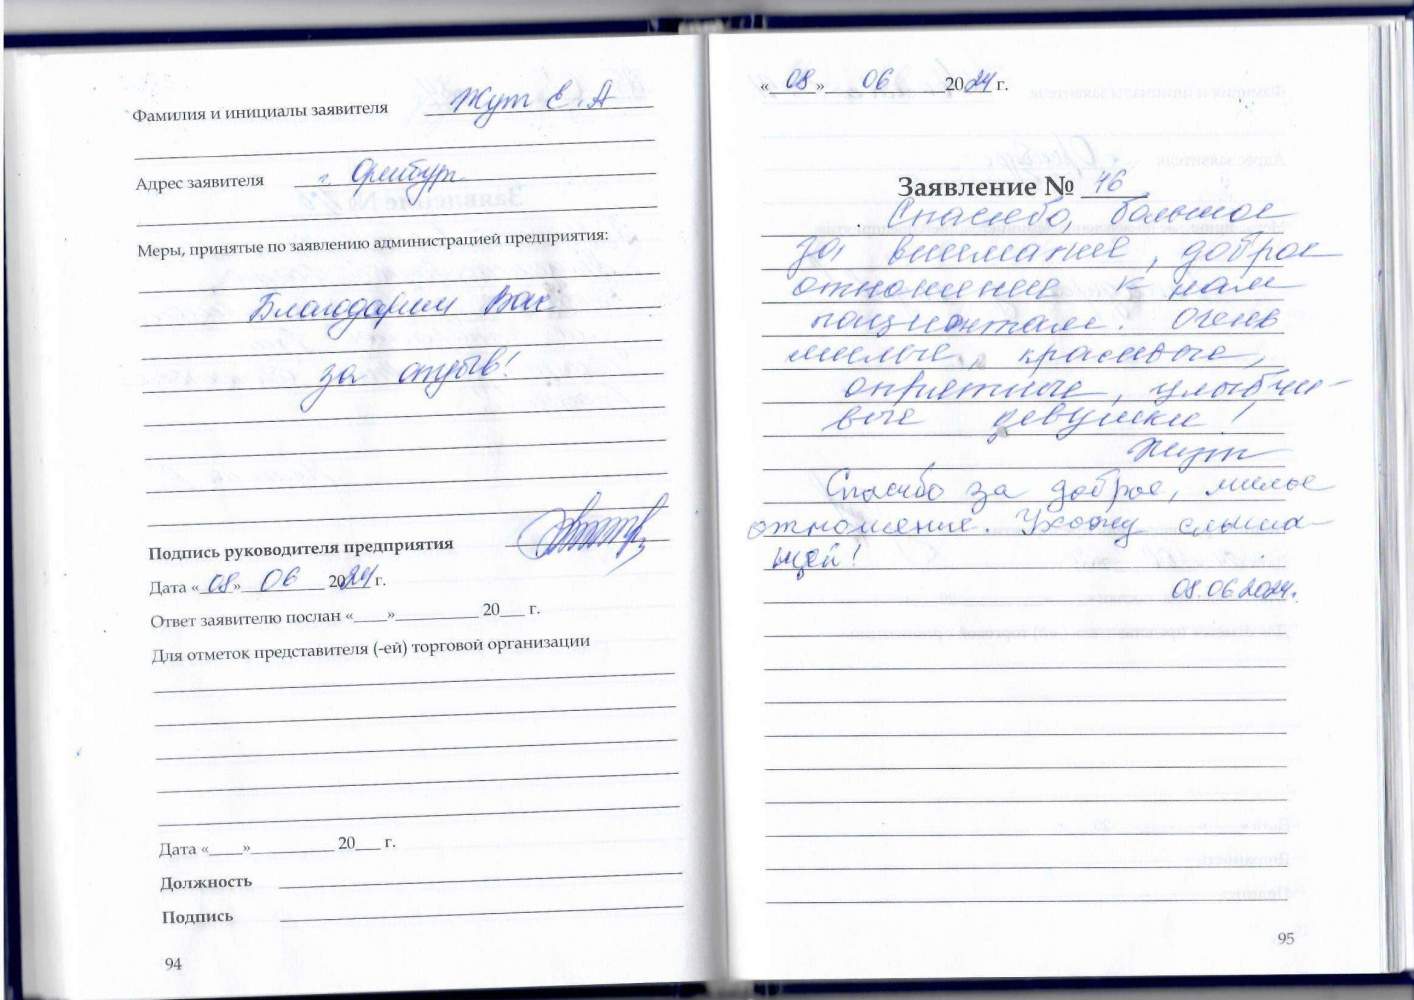 Фамилия и инициалы заявителя Жут Е. А
Адрес заявителя г. Оренбург
Меры, принятые по заявлению администрацией предприятия:
Благодарим Вас
за отзыв!
Подпись руководителя предприятия
Дата «08» 06 2024 г.
Ответ заявителю послан «____»__________ 20___ г.
Для отметок представителя (-ей) торговой организации
Дата «____»__________ 20___ г.
Должность
Подпись
94
«08» 06 2024 г.
Заявление № 46
Спасибо, большое
за внимание, доброе
отношение к нам
пациентам. Очень
милые, красивые,
опрятные, улыбчи-
вые девушки!
Жут
Спасибо за доброе, милое
отношение. Ухожу слыша-
щей!
08.06.2024.
95